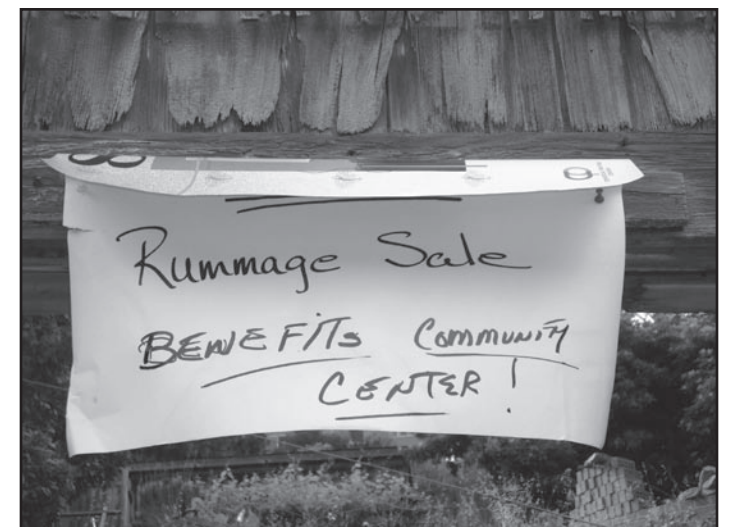 Rummage Sale
BENEFITS COMMUNITY
CENTER!